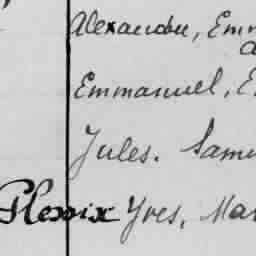 Alexandre, Em
Emmanuel, E
Jules. Samu
Plessix Yves, Mar